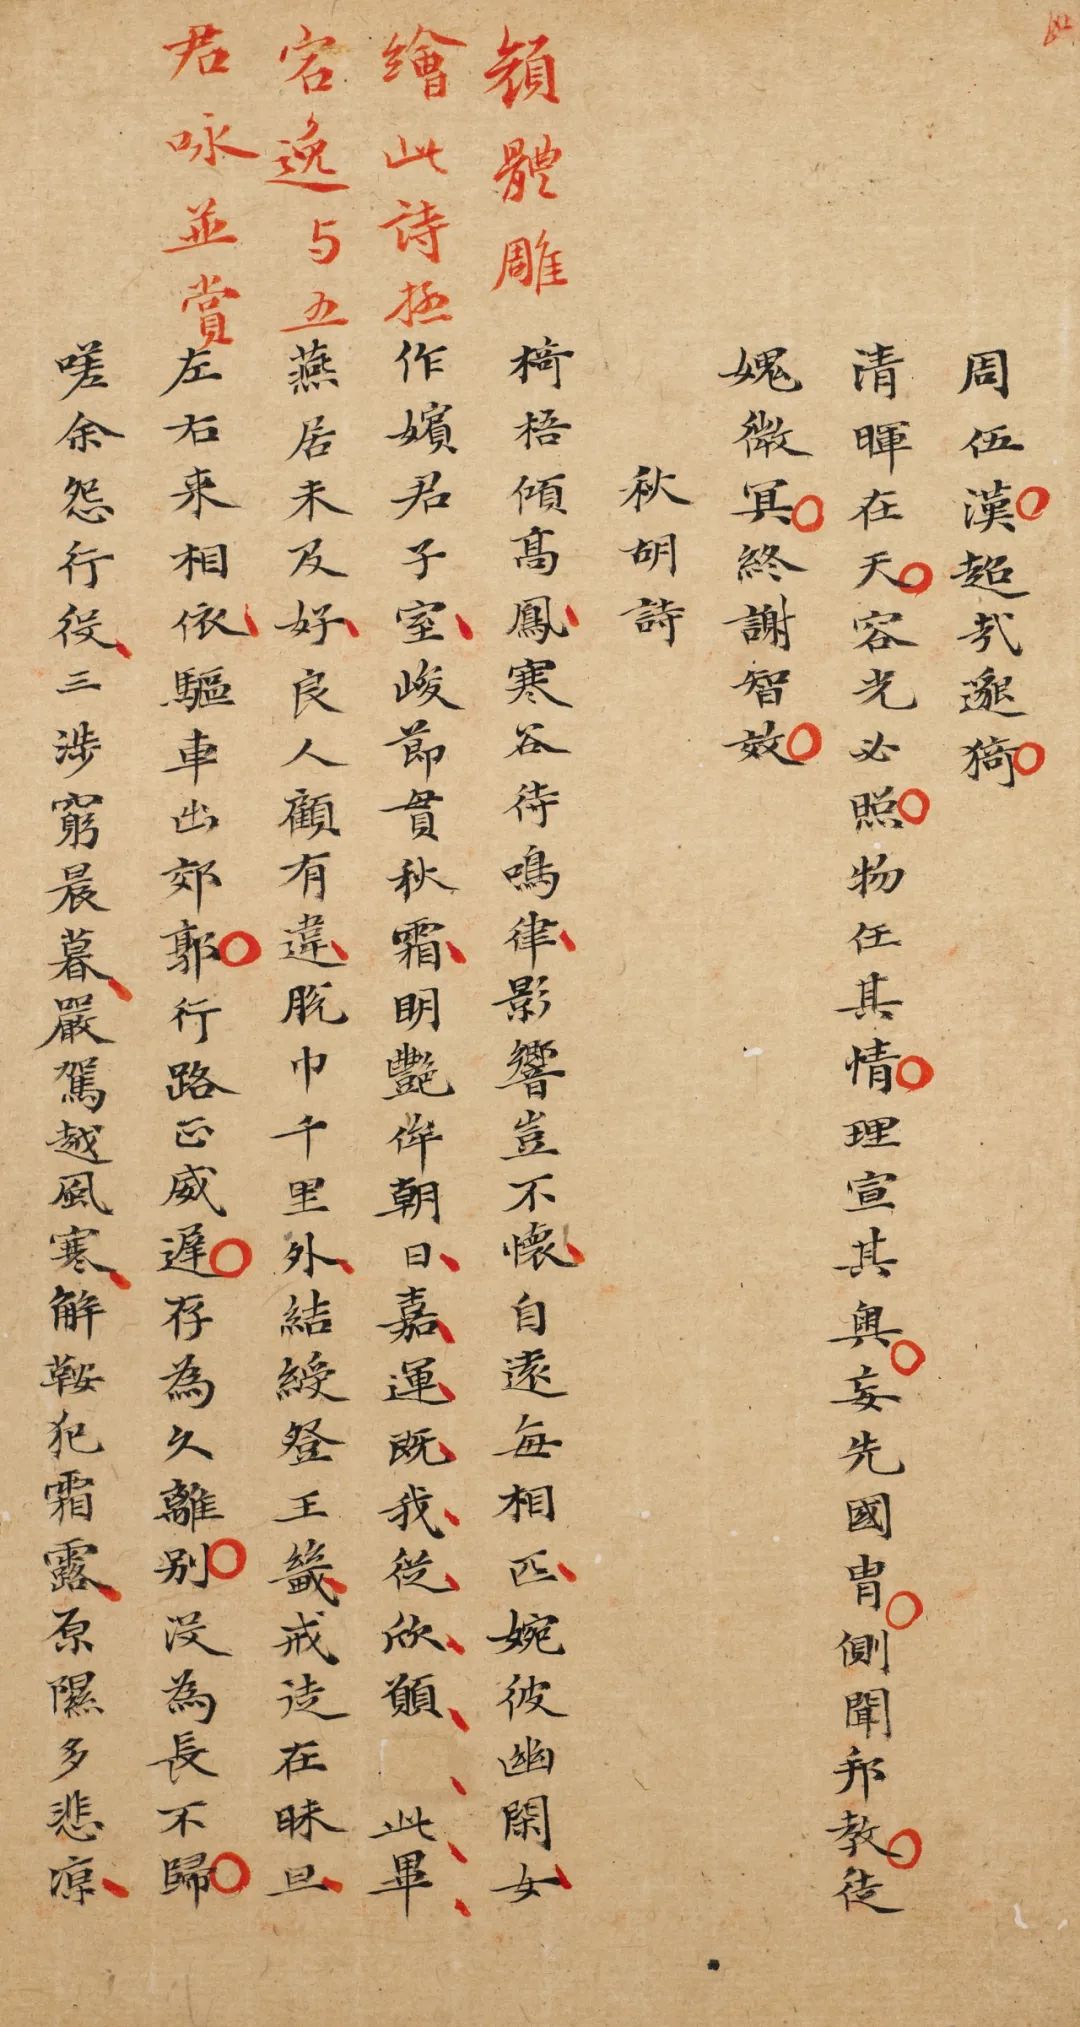 顔體雕
繪此詩極
宕逸与五
君咏並賞
周伍漢超哉邈猗
清暉在天容光必照物任其情理宣其奧妄先國胄側聞邦教徒
媿微冥終謝智效
秋胡詩
椅梧傾高鳳寒谷待鳴律影響豈不懷自遠每相匹婉彼幽閑女
作嬪君子室峻節貫秋霜明艷侔朝日嘉運既我從欣願 此畢
燕居未及好良人顧有違脫巾千里外結綬登王畿戒徒在昧旦
左右来相依驅車出郊郭行路正威遲存為久離别沒為長不歸
嗟余怨行役三涉窮晨暮嚴駕越風寒解鞍犯霜露原隰多悲涼